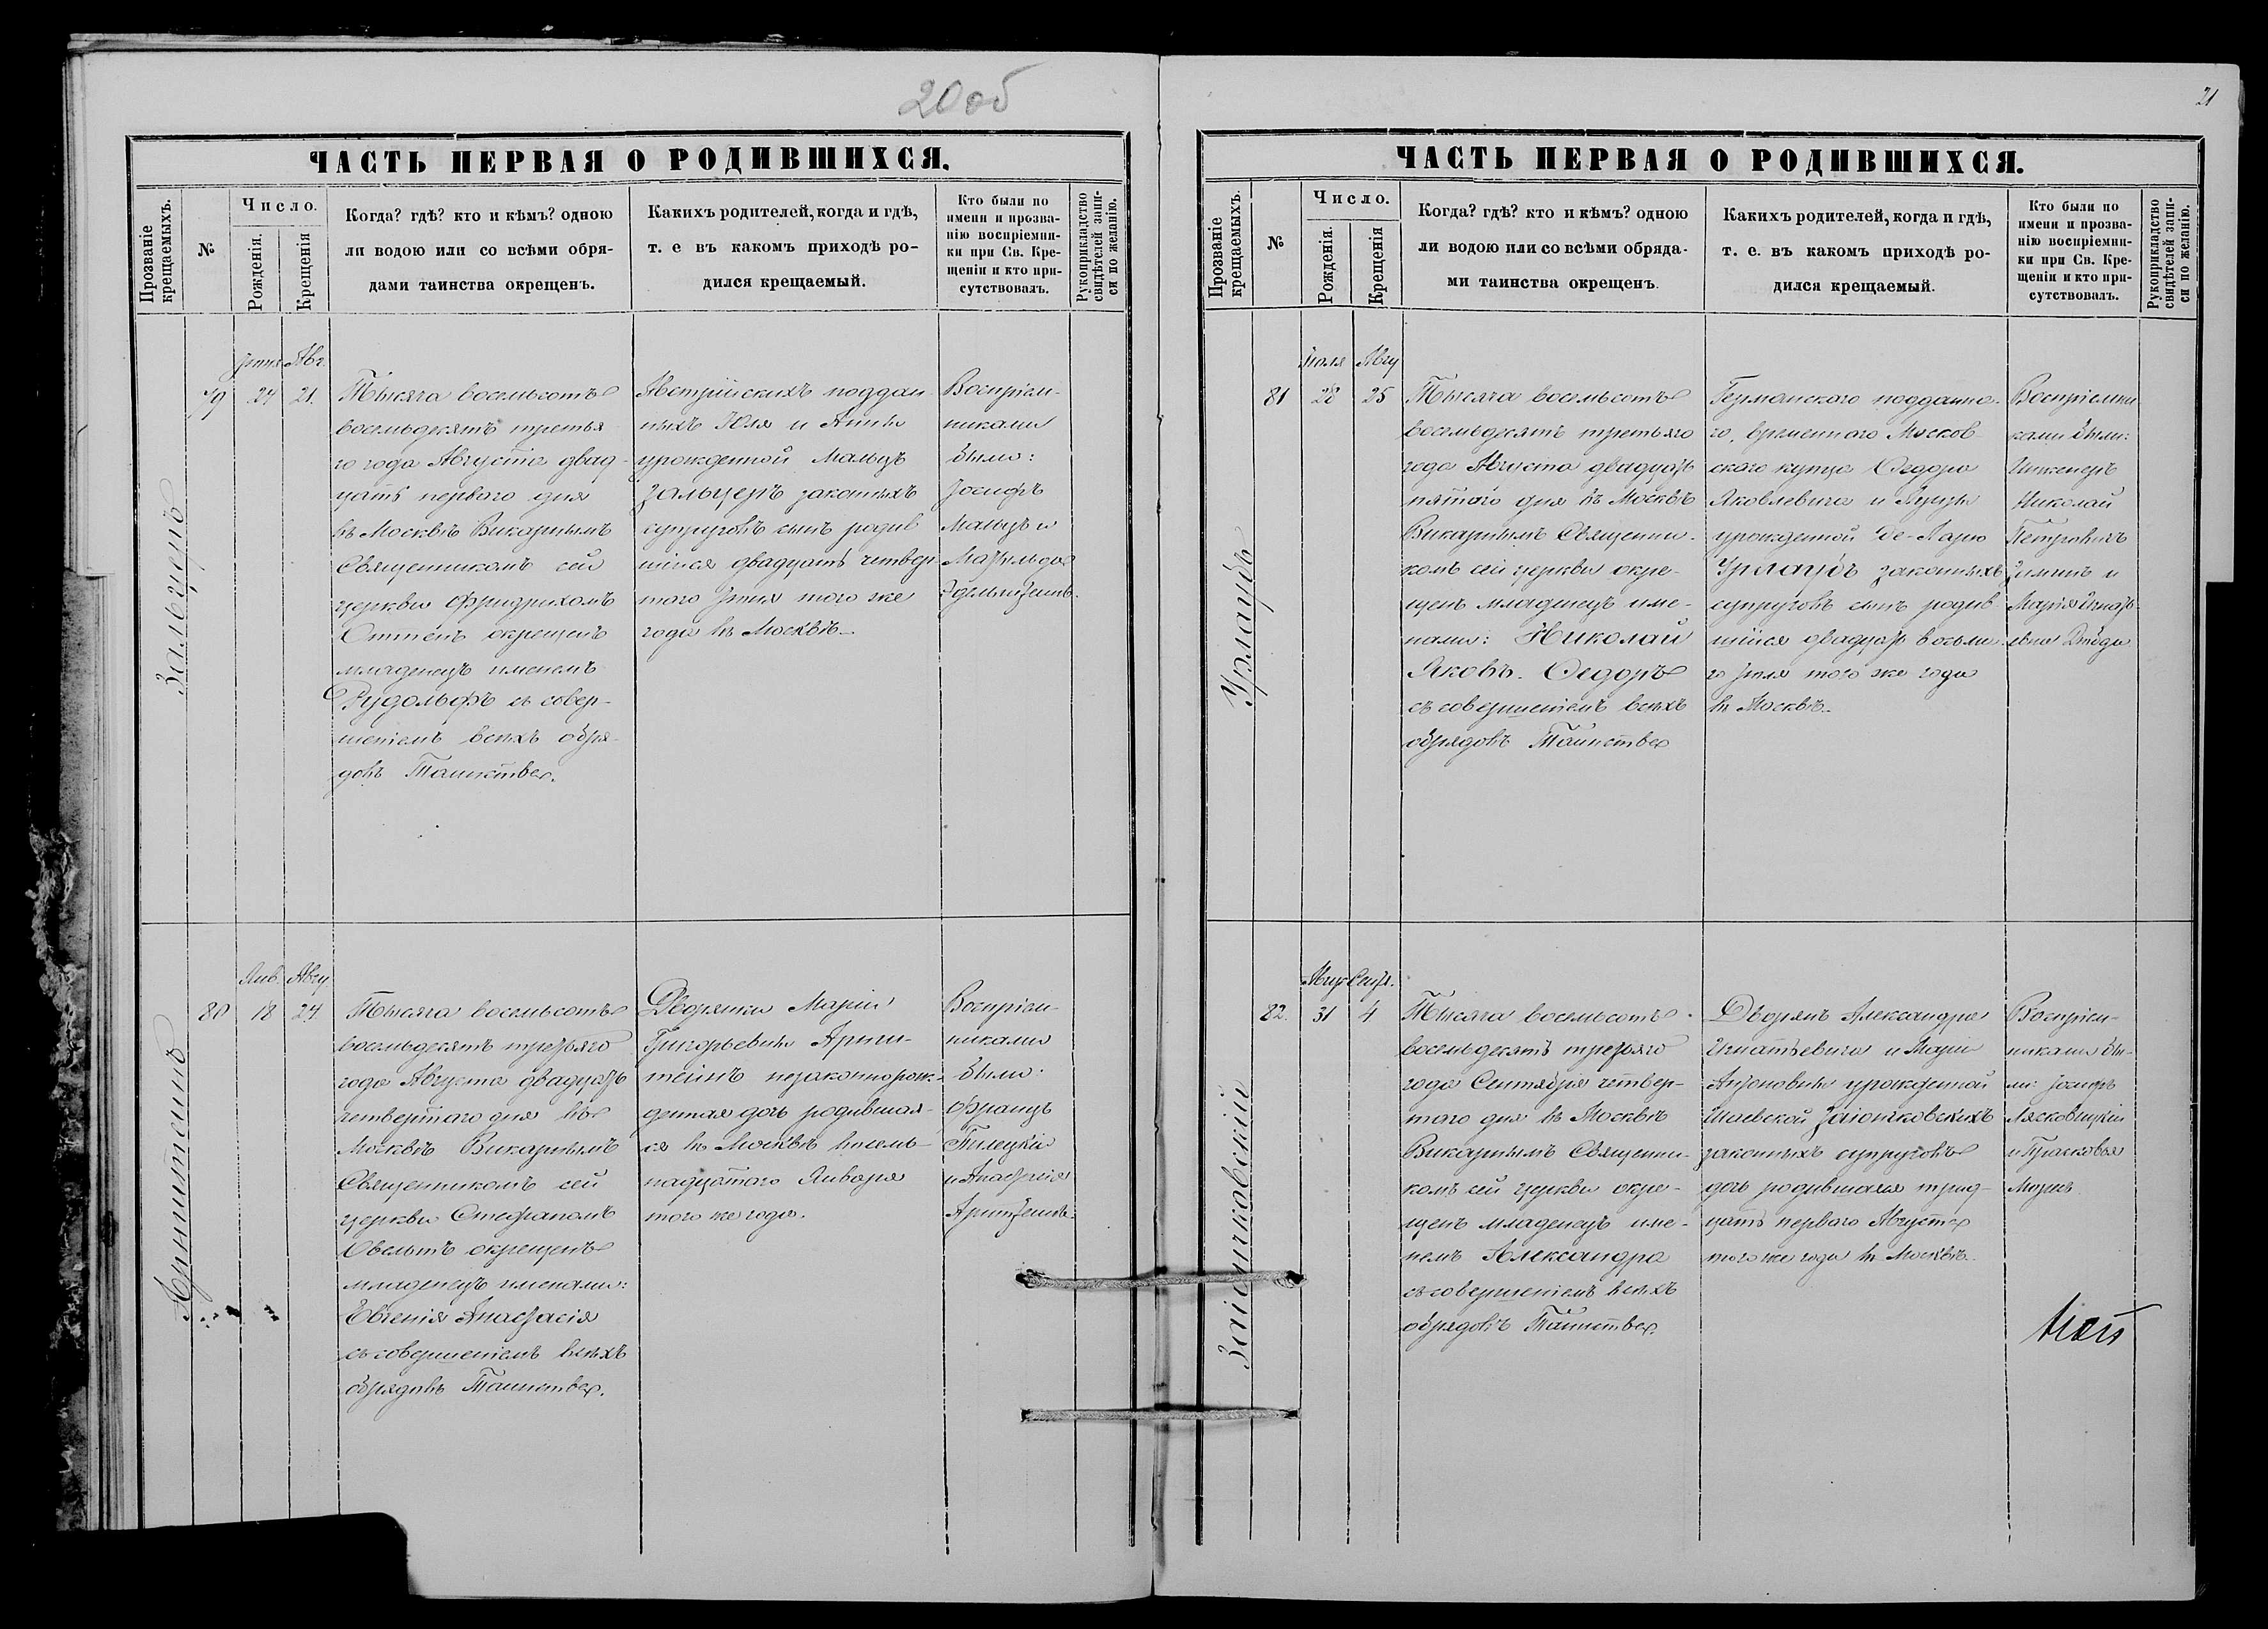 20 об
ЧАСТЬ ПЕРВАЯ О РОДИВШИХСЯ.
Прозваніе крещаемыхъ.
№
Число.
Рожденія.
Крещенія
Когда? гдѣ? кто и кѣмъ? одною
ли водою или со всѣми обря-
дами таинства окрещенъ.
Какихъ родителей, когда и гдѣ,
т. е въ какомъ приходѣ ро-
дился крещаемый.
Кто были по
имени и прозва-
нію воспріемни-
ки при Св. Кре-
щеніи и кто при-
сутствовалъ.
Рукоприкладство
свидѣтелей запи-
си по желанію.
Зальцеръ
79
Іюня Авг.
24 21.
Тысяча восемьсотъ
восемьдесятъ третья
го года Августа двад-
цать перваго дня
въ Москвѣ Викарнымъ
Священникомъ сей
церкви Фридрихомъ
Оттенъ окрещенъ
младенецъ именемъ
Рудольфъ съ совер-
шеніемъ всѣхъ обря-
довъ Таинства.
Австрійскихъ поддан
ныхъ Юля и Анны
урожденной Мальцъ
Зальцеръ законныхъ
супруговъ сынъ родив
шійся двадцать четвер-
таго Іюня того же
года въ Москвѣ.
Воспріем-
никами
были:
Іосифъ
Мальцъ и
Матильда
80
Янв. Авгу
18 24
Арнштейнъ
Тысяча восемьсотъ
восемьдесятъ третьяго
года Августа двадцать
четвертаго дня въ
Москвѣ Викарнымъ
Священникомъ сей
церкви Стефаномъ
Овельтъ окрещенъ
младенецъ именами:
Евгенія Анастасія
съ совершеніемъ всѣхъ
обрядовъ Таинства.
Дворянки Маріи
Григорьевны Арнш-
тейнъ незаконнорож-
денная дочь родившая-
ся въ Москвѣ восем-
надцатаго Января
того же года.
Воспріем-
никами
были:
Францъ
Пилецкій
и Анастасія
Арнштейнъ.
21
ЧАСТЬ ПЕРВАЯ О РОДИВШИХСЯ.
Прозваніе крещаемыхъ.
№
Число.
Рожденія.
Крещенія
Когда? гдѣ? кто и кѣмъ? одною
ли водою или со всѣми обряда-
ми таинства окрещенъ.
Какихъ родителей, когда и гдѣ,
т. е. въ какомъ приходѣ ро-
дился крещаемый.
Кто были по
имени и прозва-
нію воспріемни-
ки при Св. Кре-
щеніи и кто при-
сутствовалъ.
Рукоприкладство
свидѣтелей запи-
си по желанію.
Урлаубъ
81
Іюля Авгу
28 25
Тысяча восемьсотъ
восемьдесятъ третьяго
года Августа двадцать
пятаго дня въ Москвѣ
Викарнымъ Священни-
комъ сей церкви окре-
щенъ младенецъ име-
нами: Николай
Яковъ. Ѳедоръ
съ совершеніемъ всѣхъ
обрядовъ Таинства
Германскаго подданна-
го, временнаго Москов-
скаго купца Ѳедора
Яковлевича и Луизы
урожденной Де-Ларю
Урлаубъ законныхъ
супруговъ сынъ родив
шійся двадцать восьма-
го Іюля того же года
въ Москвѣ.
Воспріемни
ками были:
Инженеръ
Николай
Петровичъ
Зиминъ и
82.
Авгус Сентя.
31 4
Заіончковскій
Тысяча восемьсотъ
восемьдесятъ третьяго
года Сентября четвер-
таго дня въ Москвѣ
Викарнымъ Священни-
комъ сей церкви окре-
щенъ младенецъ име-
немъ Александра
съ совершеніемъ всѣхъ
обрядовъ Таинства.
Дворянъ Александра
Игнатьевича и Маріи
Антоновны урожденной
Заіончковскихъ
законныхъ супруговъ
дочь родившаяся трид-
цать перваго Августа
того же года въ Москвѣ.
Воспріем-
никами бы-
ли: Іосифъ
Лясковецкій
и Прасковья